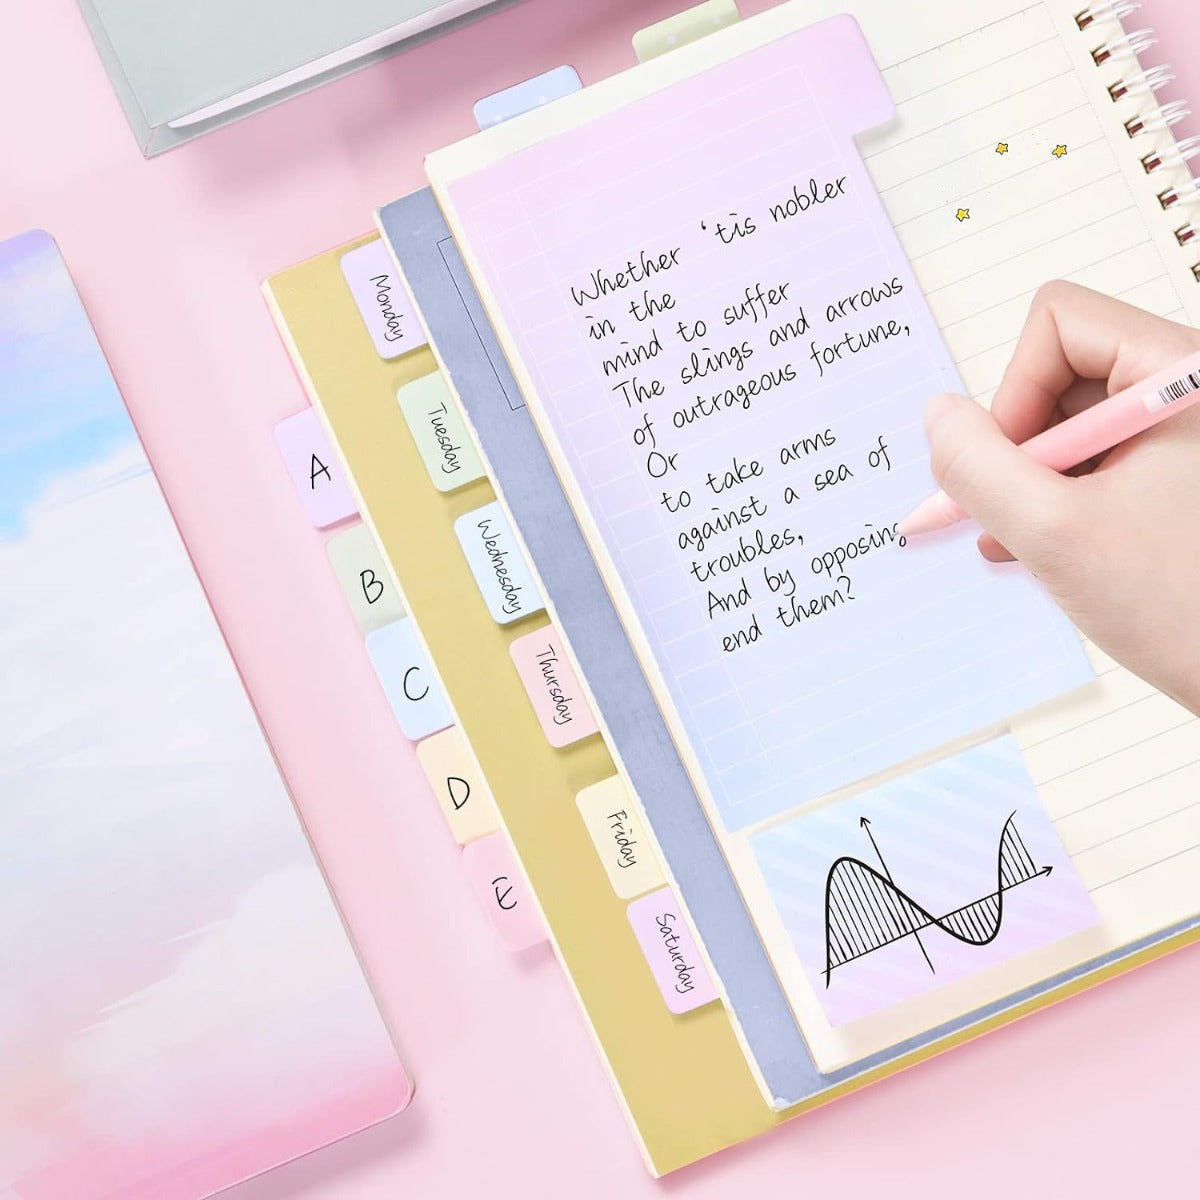 Whether 'tis nobler
in the
mind to suffer
The slings and arrows
of outrageous fortune,
Or
to take arms
against a sea of
troubles,
And by opposing
end them?
Monday
Tuesday
Wednesday
Thursday
Friday
Saturday
A
B
C
D
E